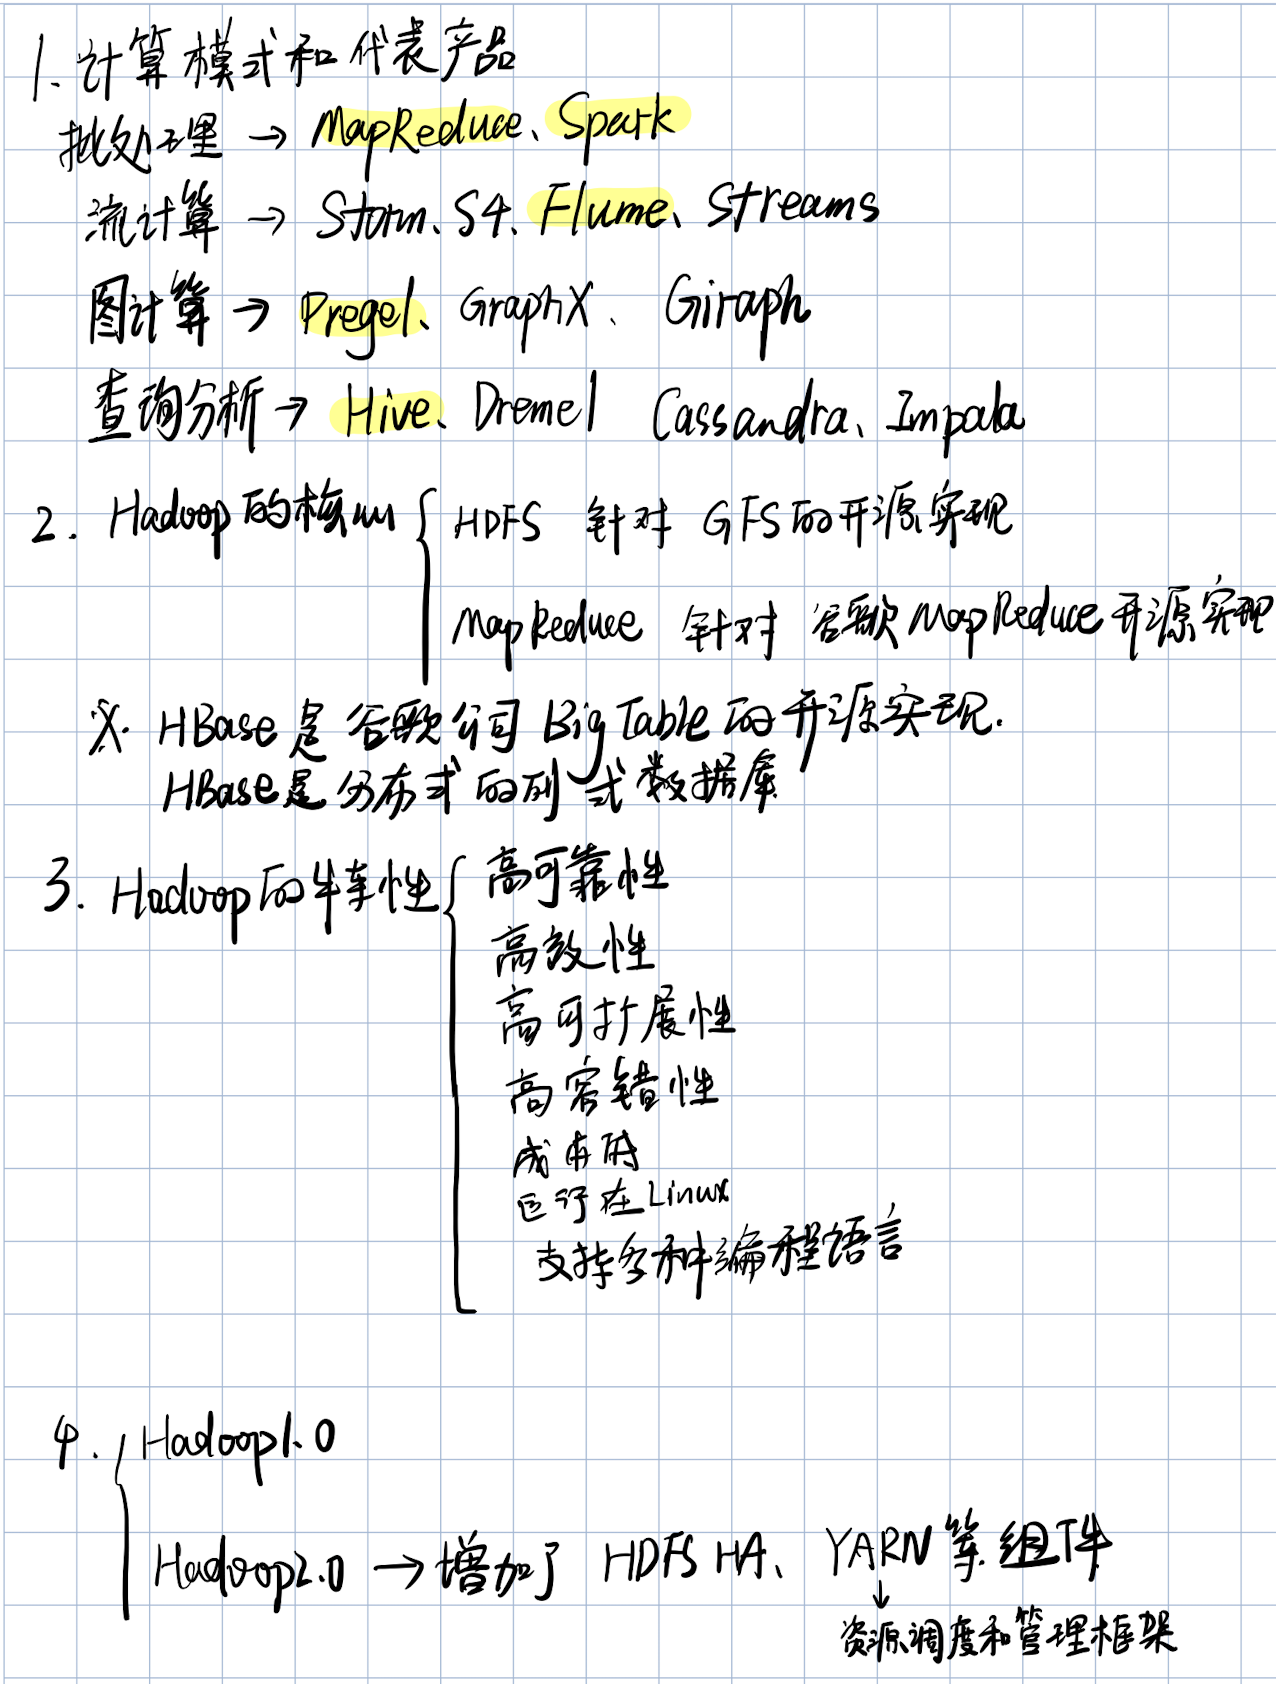 1. 计算模式和代表产品
批处理 → MapReduce、Spark
流计算 → Storm、S4、Flume、Streams
图计算 → Pregel、GraphX、Giraph
查询分析 → Hive、Dremel Cassandra、Impala
2. Hadoop的核心 { HDFS 针对 GFS的开源实现
MapReduce 针对 谷歌MapReduce开源实现
※. HBase是谷歌公司BigTable的开源实现.
HBase是分布式的列式数据库
3. Hadoop的特性 { 高可靠性
高效性
高可扩展性
高容错性
成本低
运行在Linux
支持多种编程语言
4. { Hadoop1.0
Hadoop2.0 → 增加了 HDFS HA、YARN等组件
↓
资源调度和管理框架